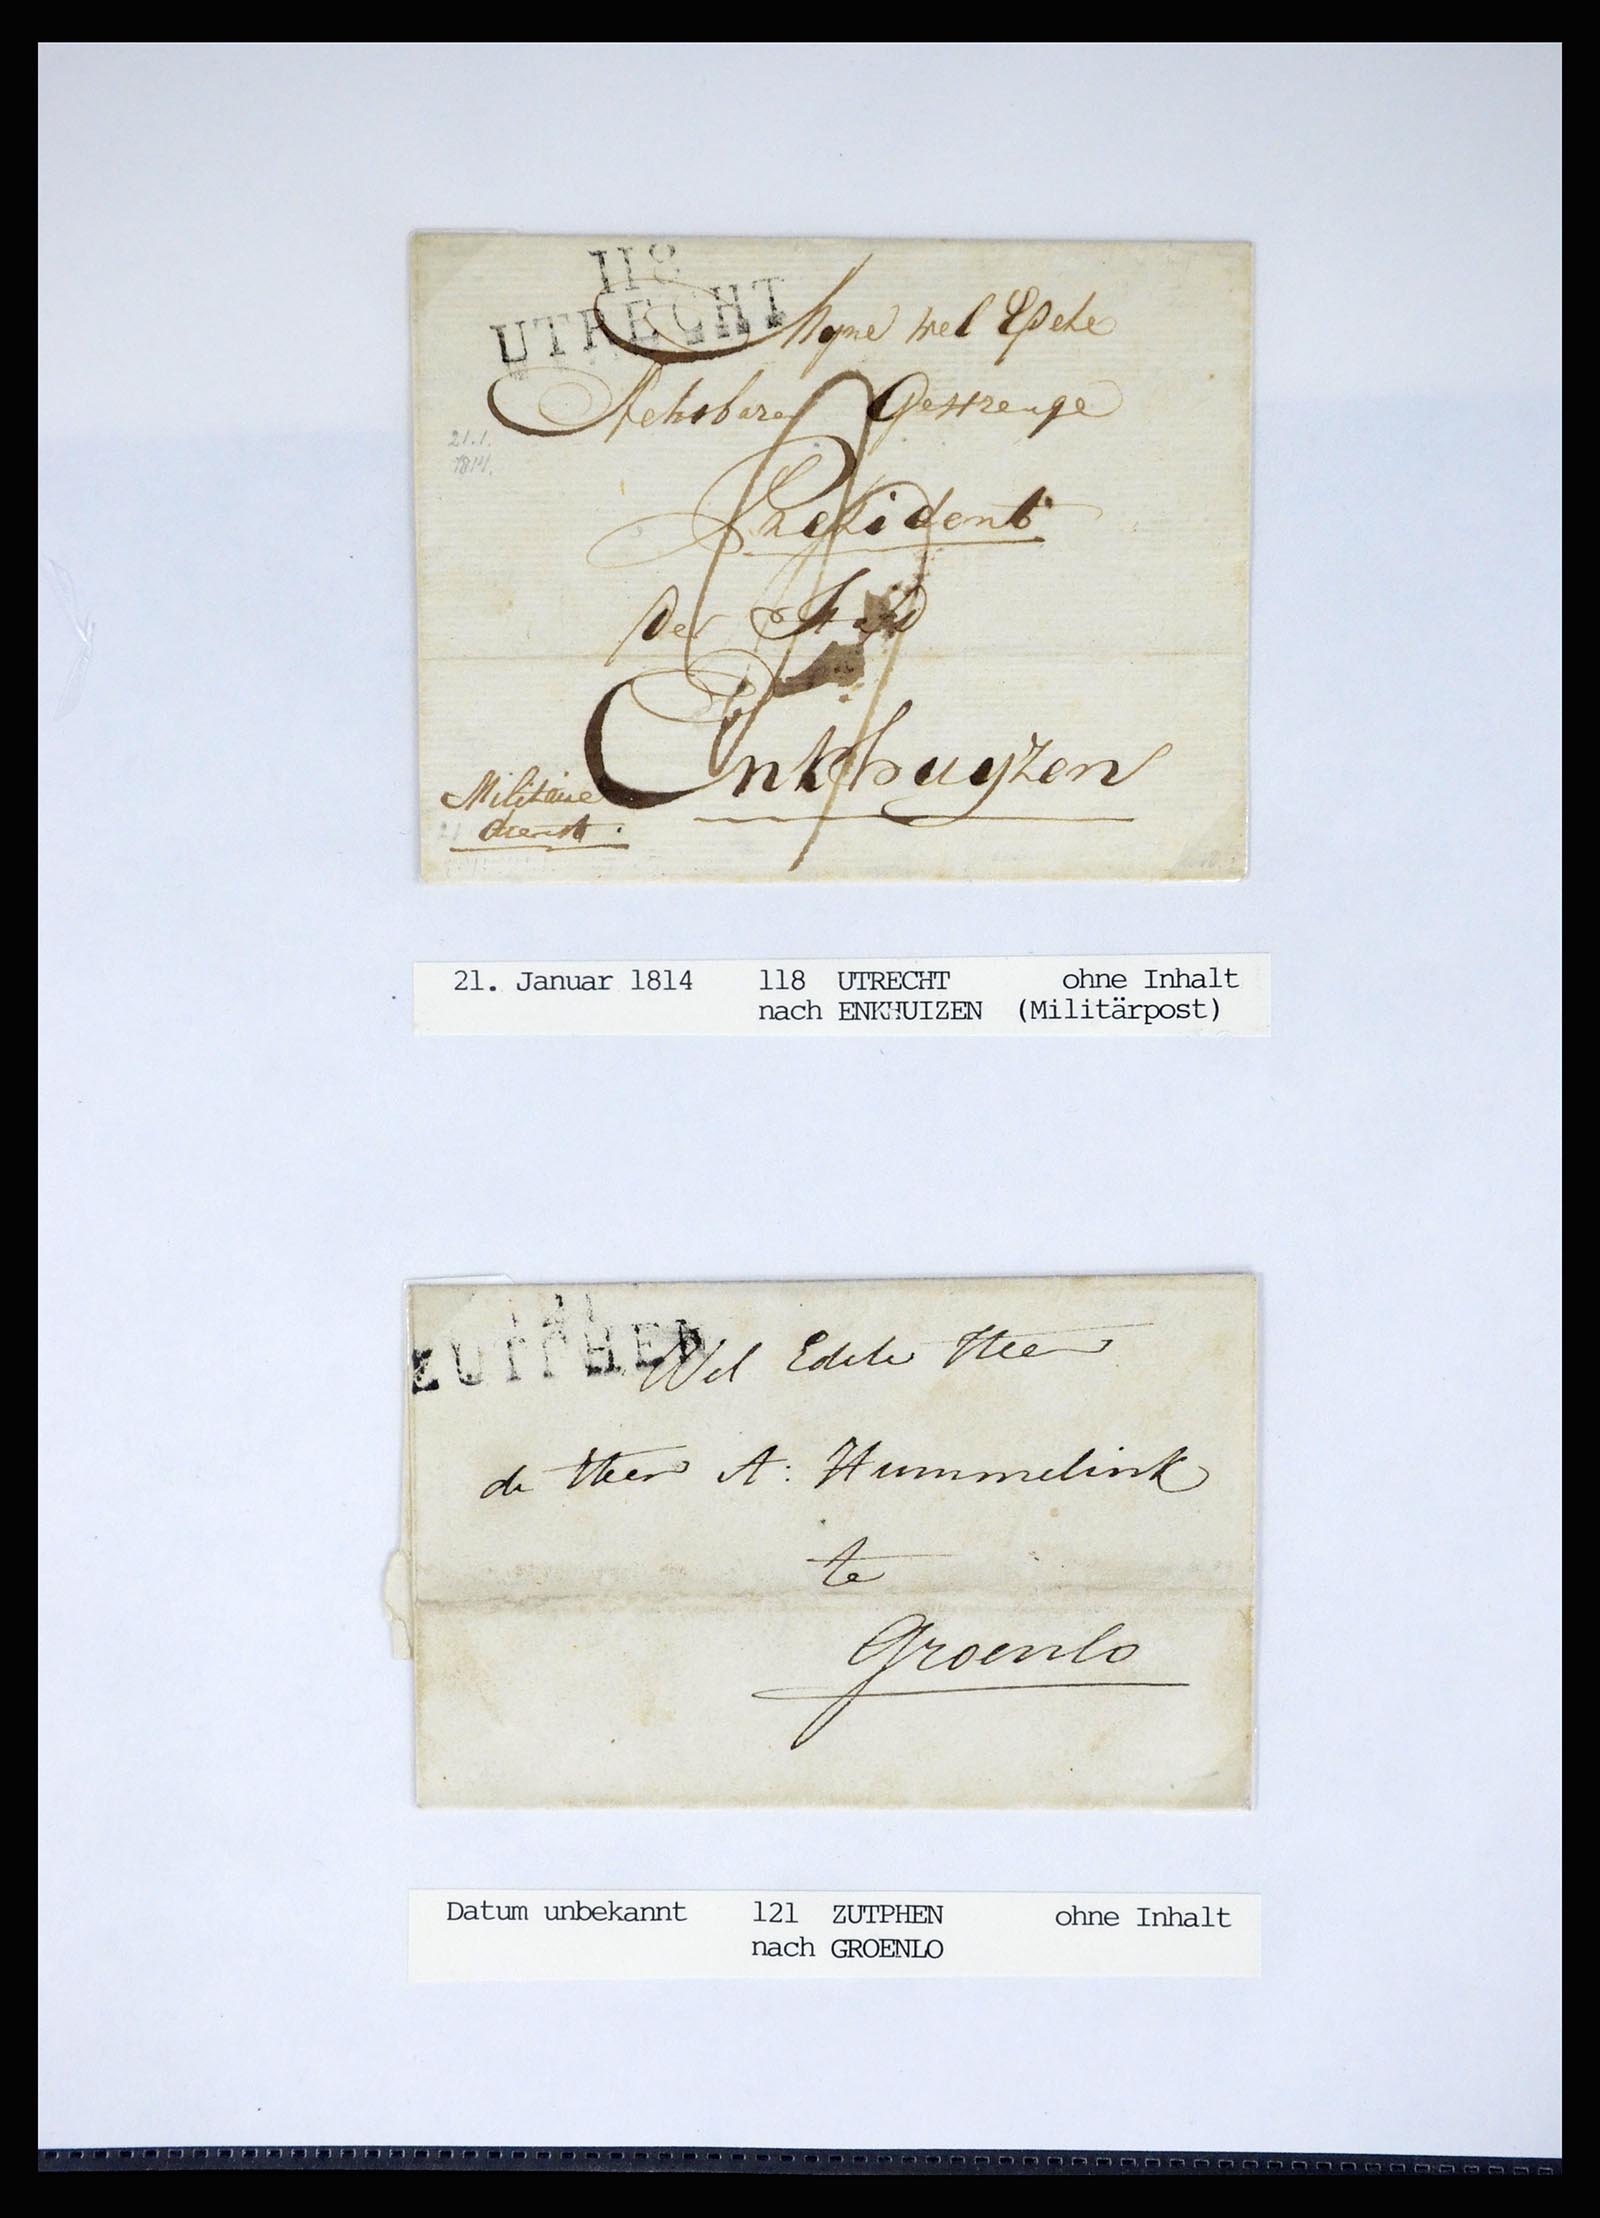 118
UTRECHT
Myne wel Edele
Achtbare Gestrenge
21.1.
1814.
President
der Stad
Enkhuyzen
Militaire
dienst.
21. Januar 1814 118 UTRECHT ohne Inhalt
nach ENKHUIZEN (Militärpost)
121
ZUTPHEN
Wel Edele Heer
de Heer A: Hummelink
te
Groenlo
Datum unbekannt 121 ZUTPHEN ohne Inhalt
nach GROENLO